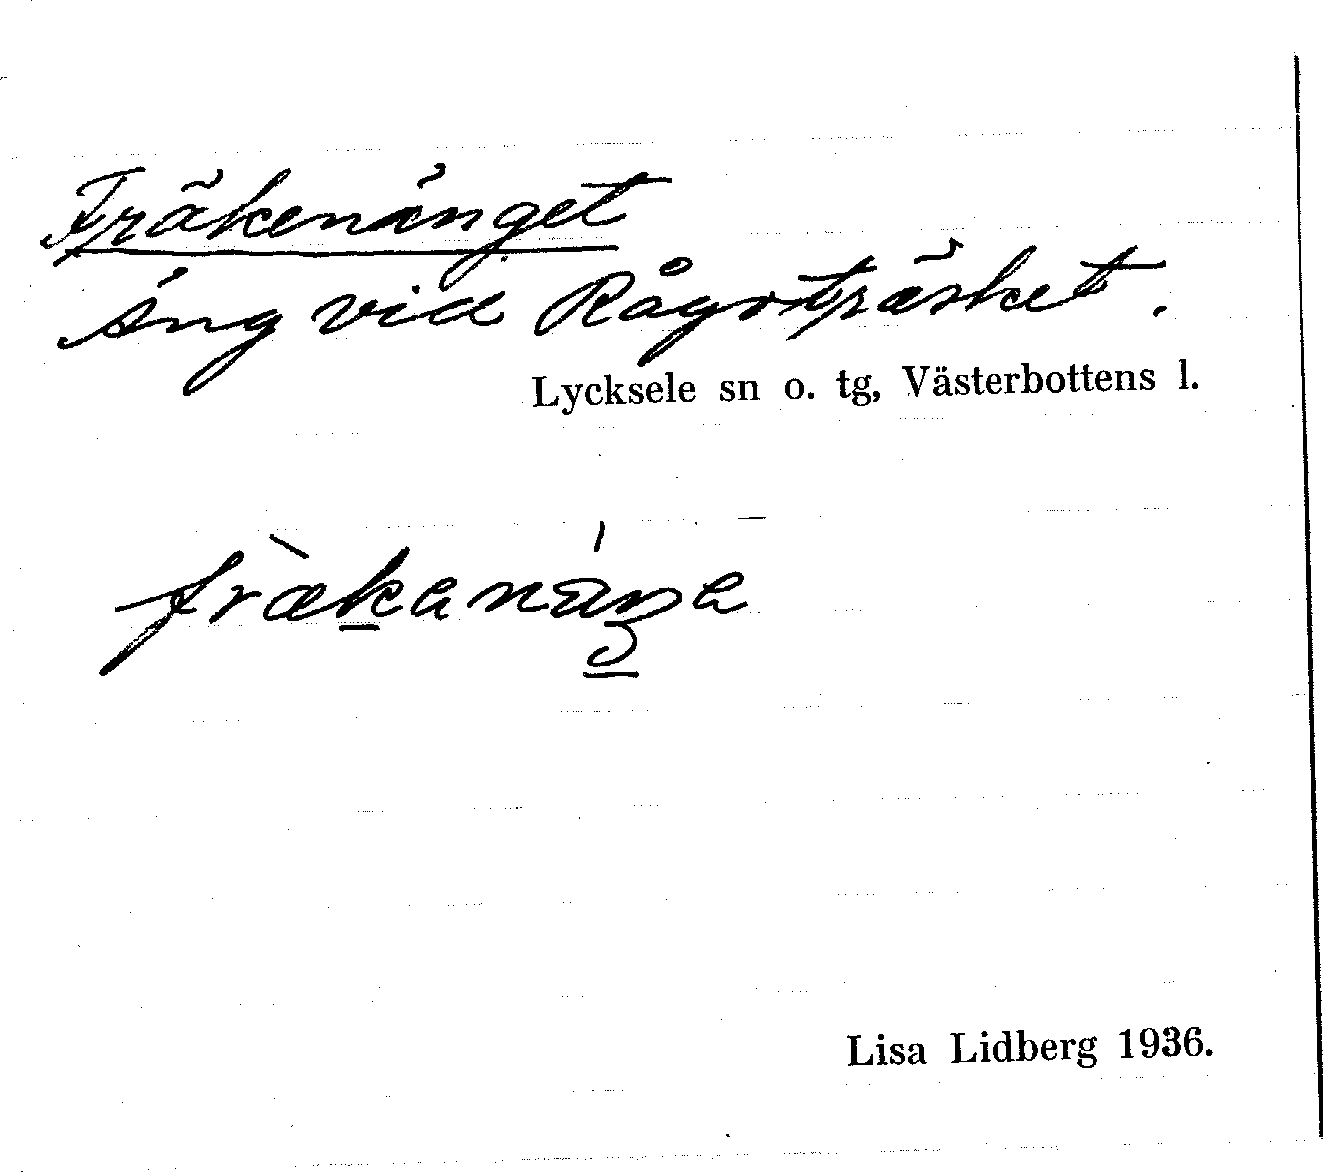 Fräkenänget
äng vid Rågoträsket.
Lycksele sn o. tg, Västerbottens l.
Lisa Lidberg 1936.